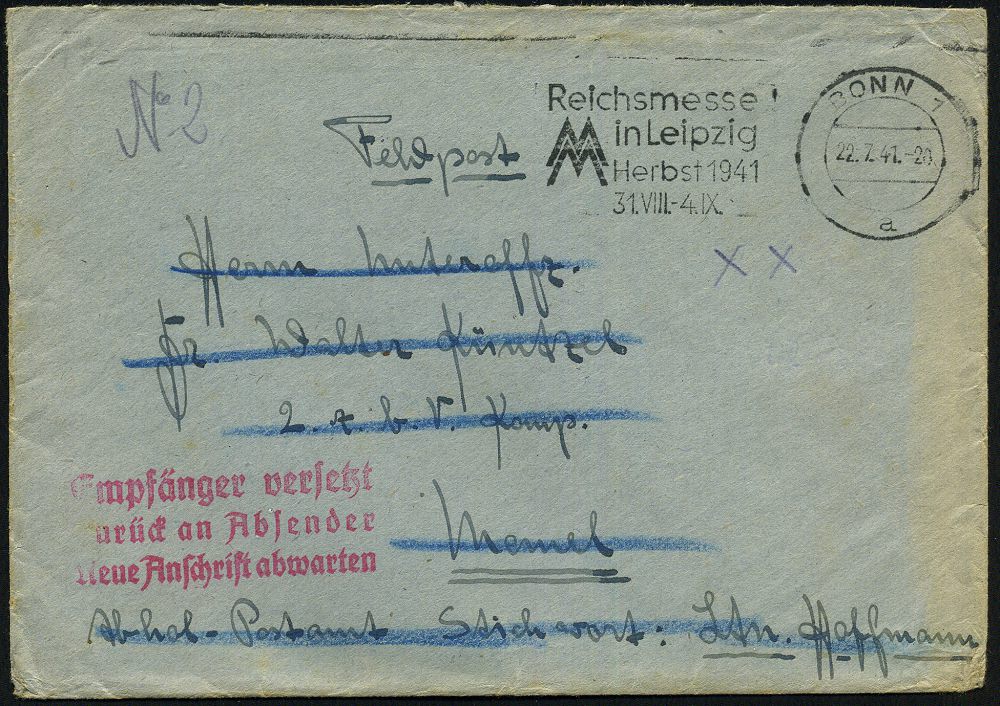 No 2
Feldpost
Reichsmesse!
in Leipzig
Herbst 1941
31.VIII.-4.IX.
BONN 1
22.7.41.-20
a
x x
Herrn Unteroffz.
Fr. Walter Küntzel
2. A. b. V. Komp.
Empfänger versetzt
urück an Absender
Neue Anschrift abwarten
Memel
Abhol-Postamt Stichwort: Ltn. Hoffmann